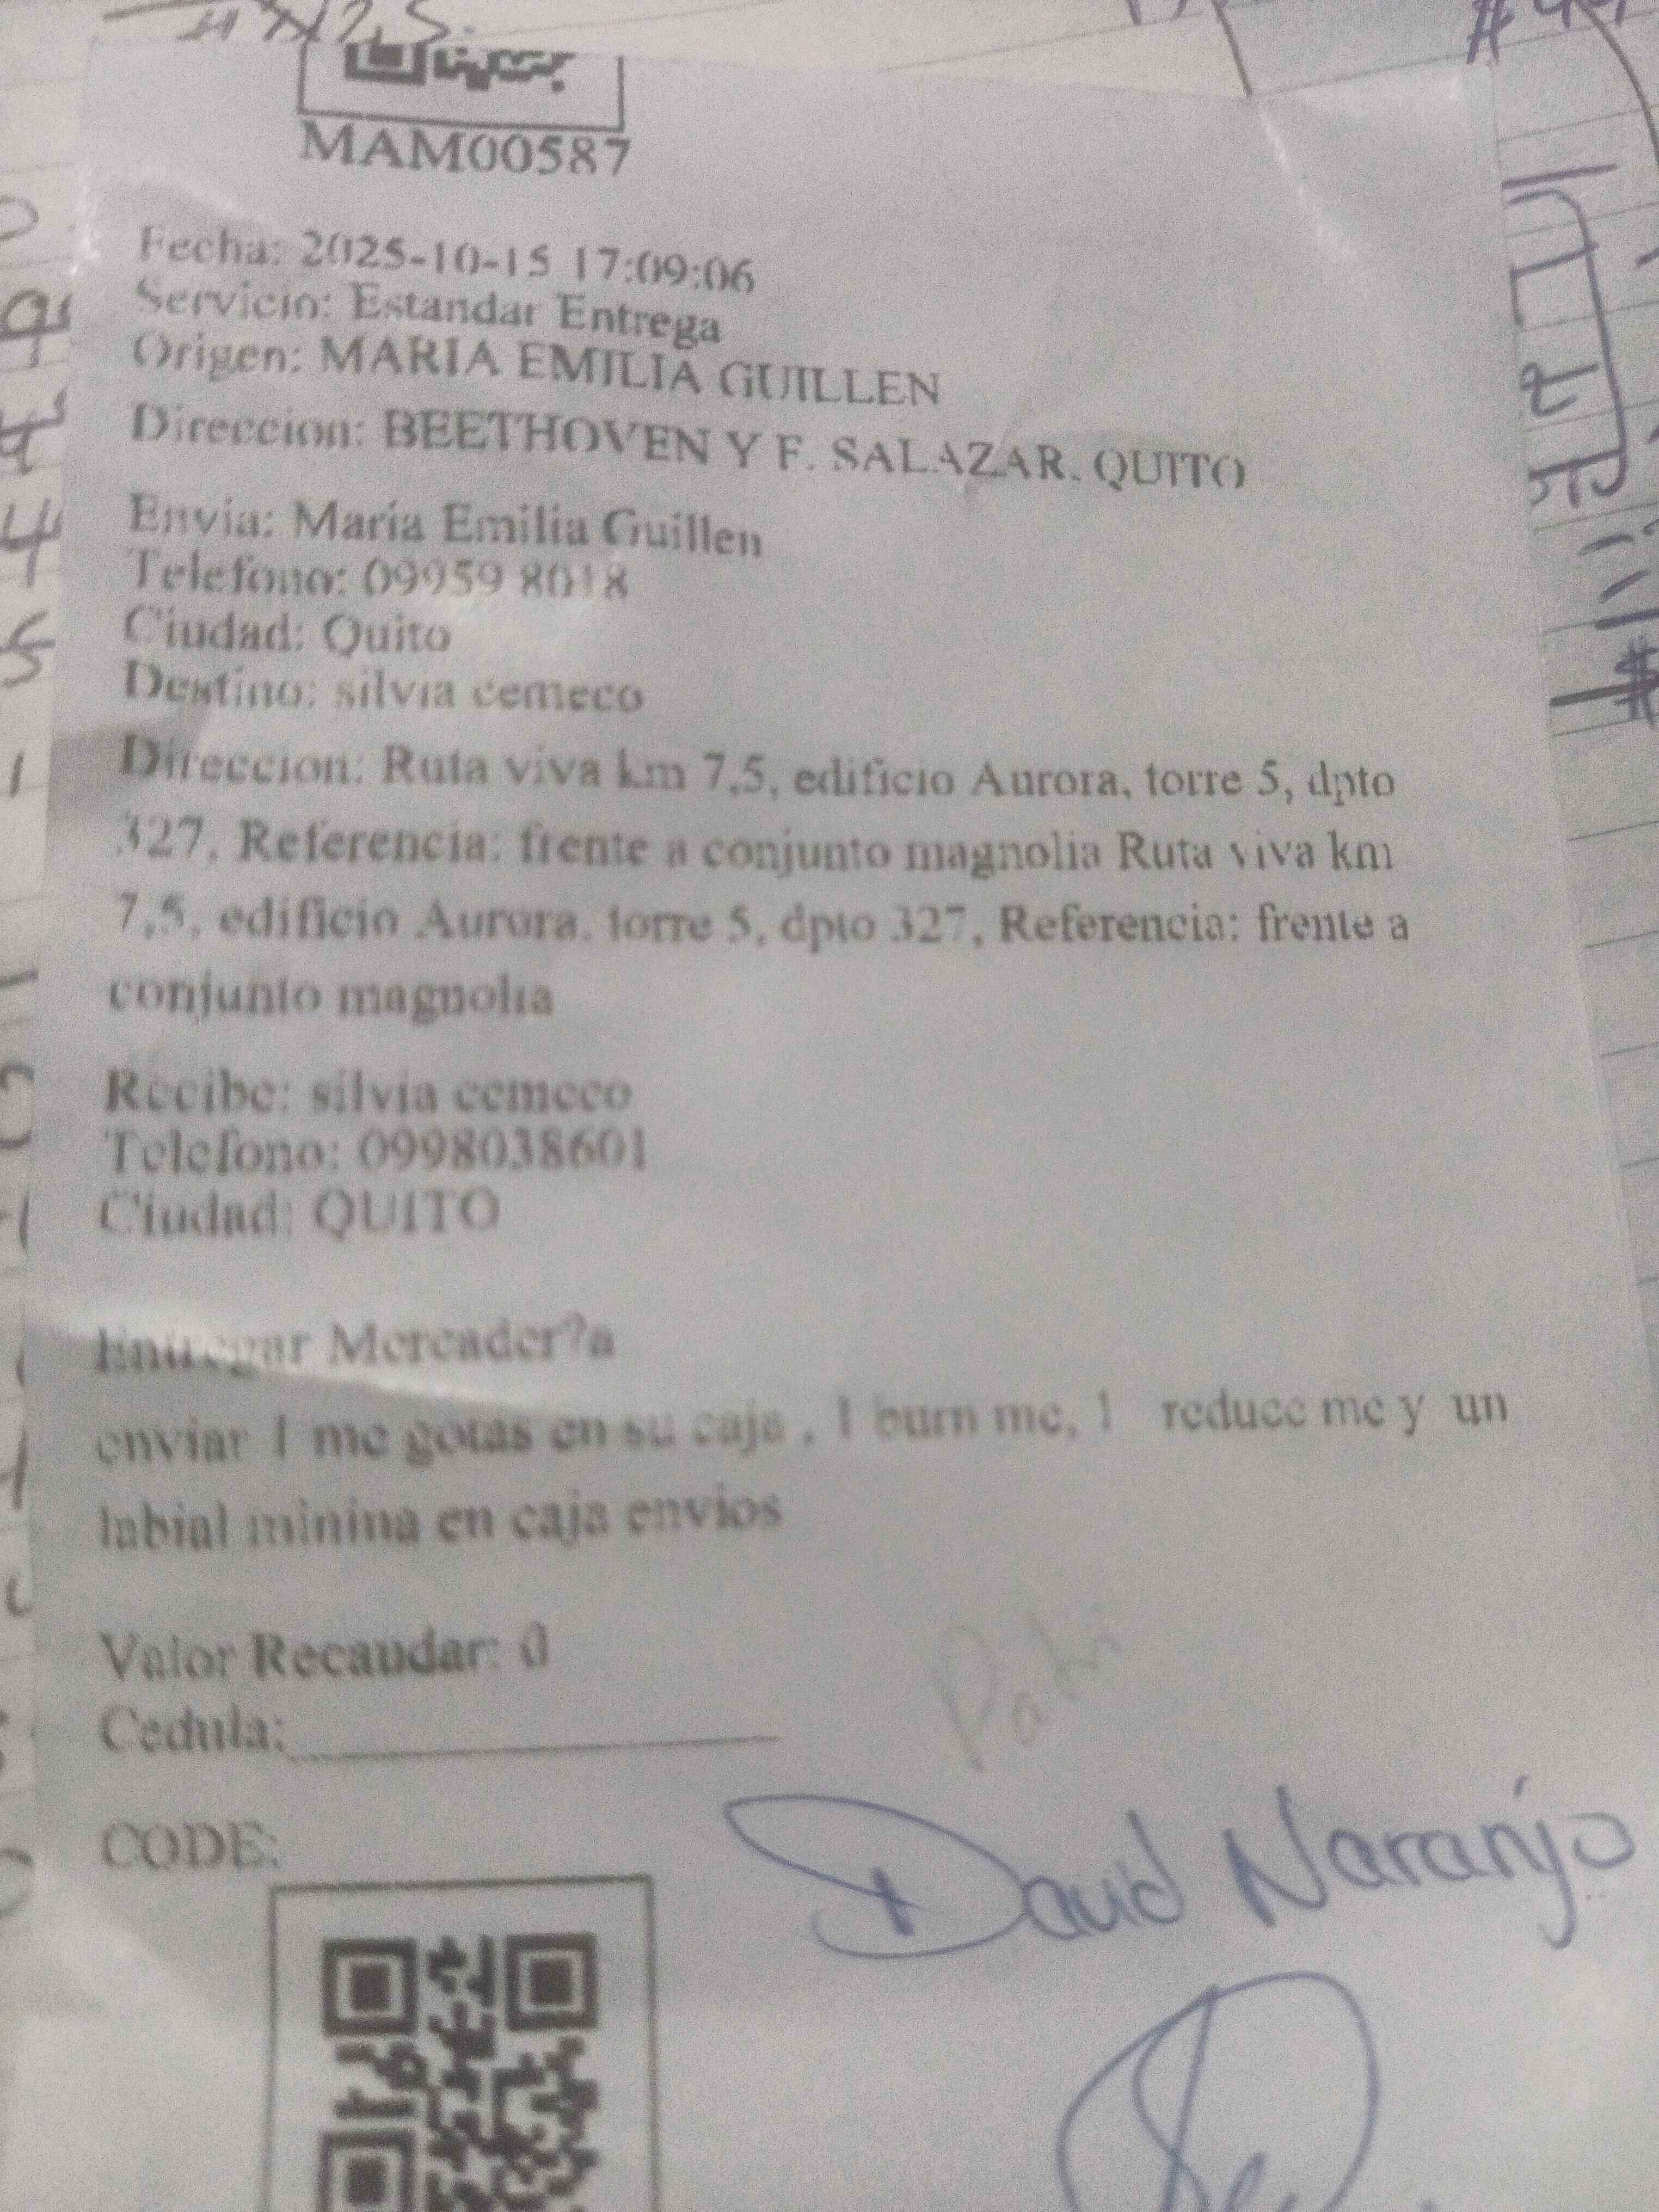 MAM00587
Fecha: 2025-10-15 17:09:06
Servicio: Estandar Entrega
Origen: MARIA EMILIA GUILLEN
Direccion: BEETHOVEN Y F. SALAZAR. QUITO
Envia: María Emilia Guillen
Telefono: 09959 8018
Ciudad: Quito
Destino: silvia cemeco
Direccion: Ruta viva km 7,5, edificio Aurora, torre 5, dpto
327, Referencia: frente a conjunto magnolia Ruta viva km
7,5, edificio Aurora, torre 5, dpto 327, Referencia: frente a
conjunto magnolia
Recibe: silvia cemeco
Telefono: 0998038601
Ciudad: QUITO
Entregar Mercader?a
enviar 1 me gotas en su caja , 1 burn me, 1 reduce me y un
labial minina en caja envios
Valor Recaudar: 0
Cedula:
CODE:
David Naranjo